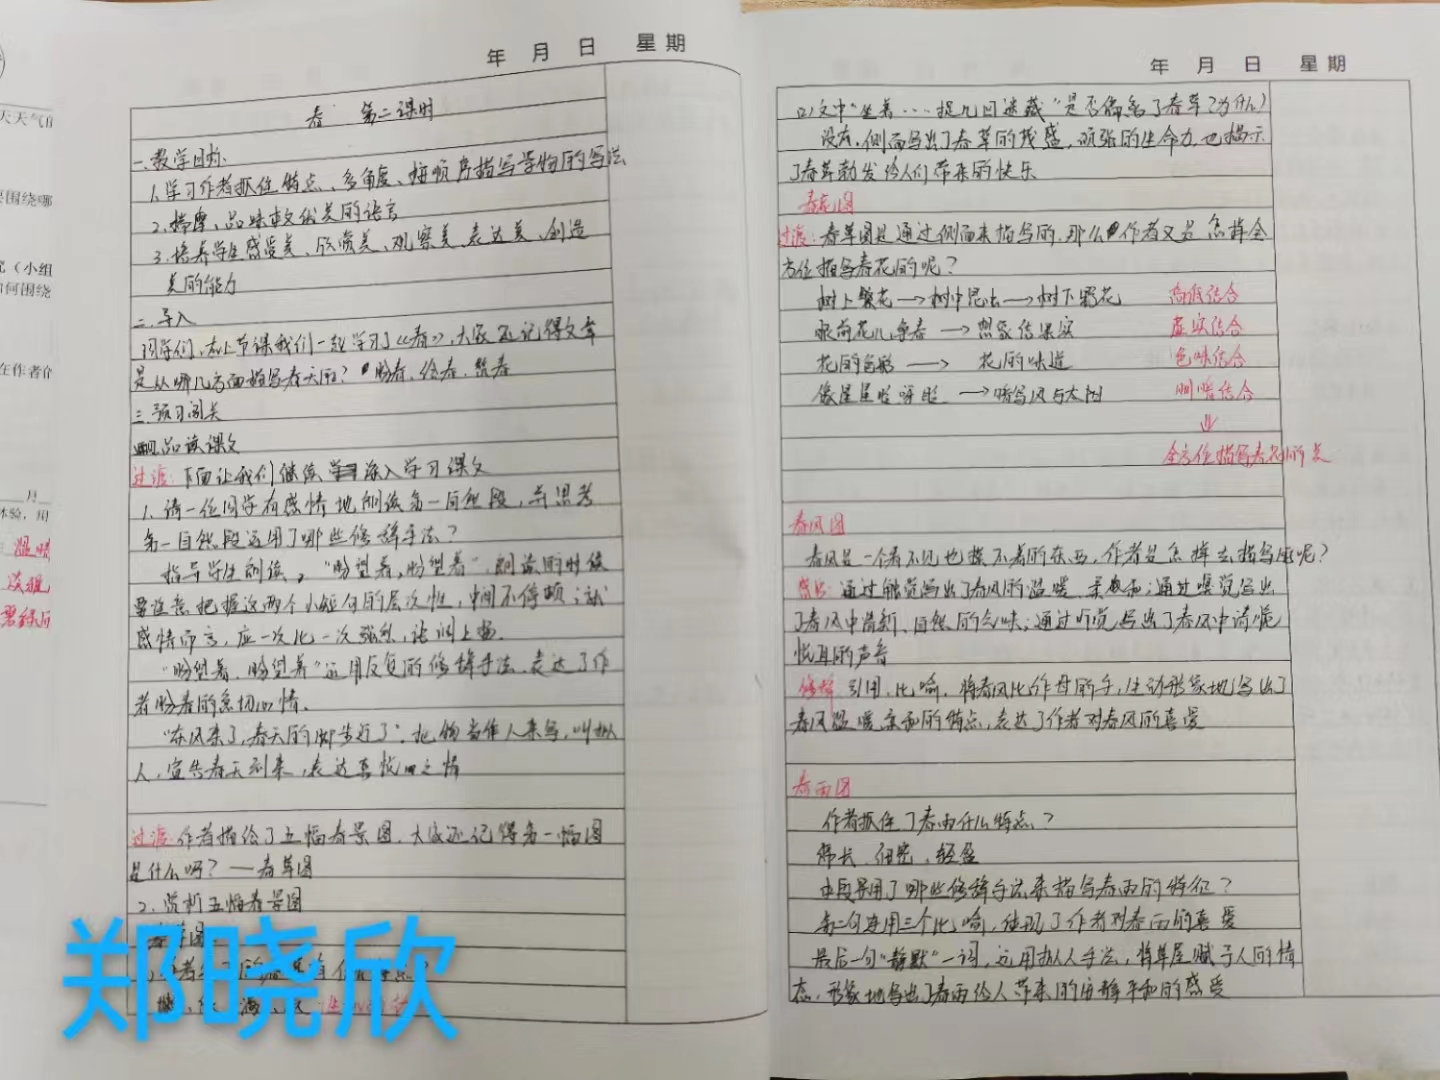 天天气
围绕哪
(小组
何围绕
在作者
月
体验，用
年 月 日 星期
春 第二课时
一.教学目标.
1.学习作者抓住特点、多角度、按顺序描写景物的写法
2.揣摩、品味散文优美的语言
3.培养学生感受美、欣赏美、观察美、表达美、创造
美的能力
二.导入
同学们，在上节课我们一起学习了《春》，大家还记得文章
是从哪几方面描写春天的？盼春、绘春、赞春
三.预习闯关
四.品读课文
过渡：下面让我们继续深入学习课文
1.请一位同学有感情地朗读第一自然段，并思考
第一自然段运用了哪些修辞手法？
指导学生朗读，“盼望着，盼望着”，朗读的时候
要注意把握这两个小短句的层次性，中间不停顿，就
感情而言，应一次比一次强烈，语调上扬.
“盼望着，盼望着”运用反复的修辞手法，表达了作
者盼春的急切心情.
“东风来了，春天的脚步近了”：把物当作人来写，叫拟
人，宣告春天到来，表达喜悦之情
过渡：作者描绘了五幅春景图，大家还记得第一幅图
是什么吗？—春草图
2.赏析五幅春景图
郑晓欣
年 月 日 星期
(2)文中“坐着……捉几回迷藏”是否偏离了春草(为什么)
没有，侧面写出了春草的茂盛，顽强的生命力，也揭示
了春草勃发给人们带来的快乐
春花图
过渡：春草图是通过侧面来描写的，那么作者又是怎样全
方位描写春花的呢？
树上繁花→树中昆虫→树下野花 高低结合
眼前花儿争春→想象结果实 虚实结合
花的色彩→花的味道 色味结合
像星星眨呀眨→暗写风与太阳 明暗结合
⇓
全方位描写春花的美
春风图
春风是一个看不见也摸不着的东西，作者是怎样去描写风呢？
感官：通过触觉写出了春风的温暖、柔和；通过嗅觉写出
了春风中清新、自然的气味；通过听觉写出了春风中清脆
悦耳的声音
修辞：引用，比喻，将春风比作母亲的手，生动形象地写出了
春风温暖柔和的特点，表达了作者对春风的喜爱
春雨图
作者抓住了春雨什么特点？
绵长、细密、轻盈
本段采用了哪些修辞手法来描写春雨的特征？
第二句连用三个比喻，体现了作者对春雨的喜爱
最后一句“静默”一词，运用拟人手法，将草屋赋予人的情
态，形象地写出了春雨给人带来的安静平和的感受